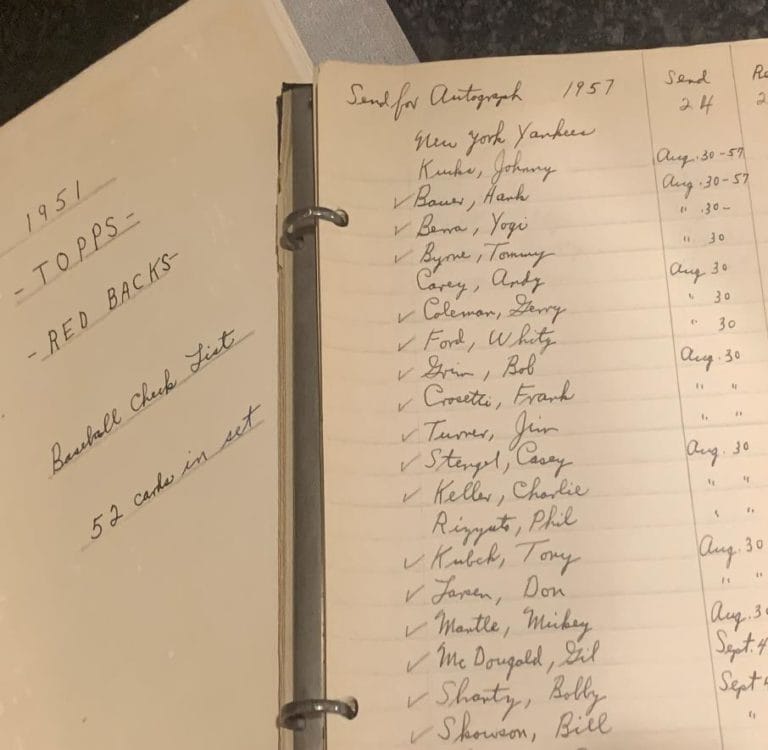 1951
-TOPPS-
-RED BACKS-
Baseball Check List
52 cards in set
Send for Autograph 1957 Send
24
New York Yankees
Kucks, Johnny Aug. 30-57
✓ Bauer, Hank Aug. 30-57
✓ Berra, Yogi " .30-
✓ Byrne, Tommy " 30
Carey, Andy Aug 30
✓ Coleman, Gerry " 30
✓ Ford, Whity " 30
✓ Grim, Bob Aug. 30
✓ Crosetti, Frank " "
✓ Turner, Jim " "
✓ Stengel, Casey Aug. 30
✓ Keller, Charlie " "
Rizzuto, Phil " "
✓ Kubek, Tony Aug. 30
✓ Larsen, Don " "
✓ Mantle, Mickey Aug. 30
✓ McDougald, Gil Sept. 4
✓ Shantz, Bobby Sept 4
✓ Skowron, Bill "